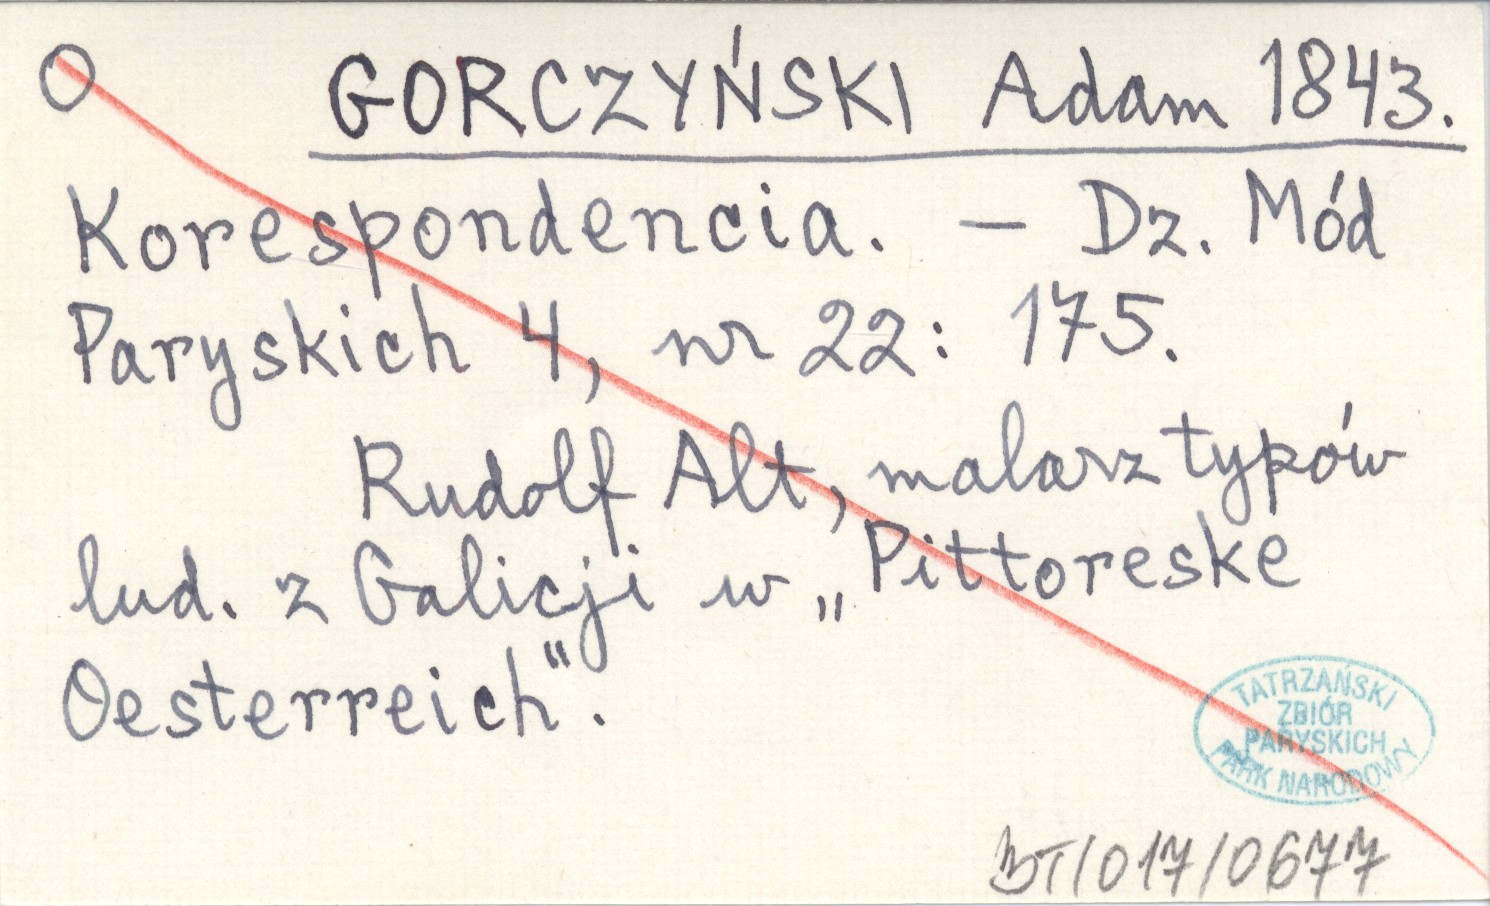 O GORCZYŃSKI Adam 1843.
Korespondencia. – Dz. Mód
Paryskich 4, nr 22: 175.
Rudolf Alt, malarz typów
lud. z Galicji w „Pittoreske
Oesterreich".
TATRZAŃSKI
ZBIÓR
PARYSKICH
PARK NARODOWY
BT/017/0677